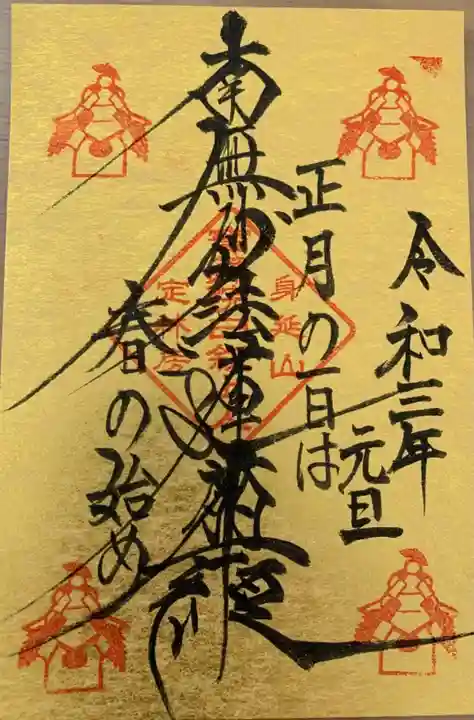 令和三年
元旦
正月の一日は
南無妙法蓮華経
春の始め
身延山
定林房